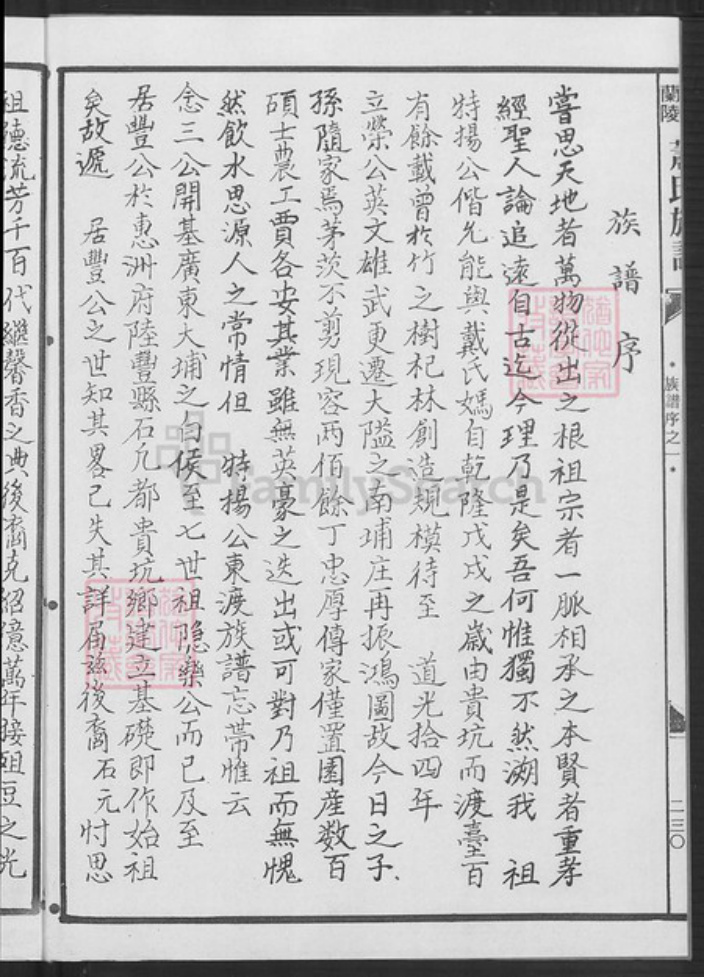 蘭陵 蕭氏族譜
•族譜序之一•
二三〇
族譜序
嘗思天地者萬物從出之根祖宗者一脈相承之本賢者重孝
經聖人論追遠自古迄今理乃是矣吾何惟獨不然溯我 祖
特揚公偕允能與戴氏媽自乾隆戊戌之歲由貴坑而渡臺百
有餘載曾於竹之樹杞林創造規模待至 道光拾四年
立榮公英文雄武更遷大隘之南埔庄再振鴻圖故今日之子
孫隨家焉茅茨不剪現容兩佰餘丁忠厚傳家僅置園産数百
碩士農工賈各安其業雖無英豪之迭出或可對乃祖而無愧
然飲水思源人之常情但 特揚公東渡族譜忘帶惟云
念三公開基廣東大埔之白侯至七世祖隐樂公而已及至
居豐公於惠洲府陸豐縣石凢都貴坑鄉建立基礎即作始祖
矣故遞 居豐公之世知其畧已失其詳届玆後裔石元忖思
祖德流芳千百代繼馨香之典後裔克紹億萬年接俎豆之光
FamilySearch